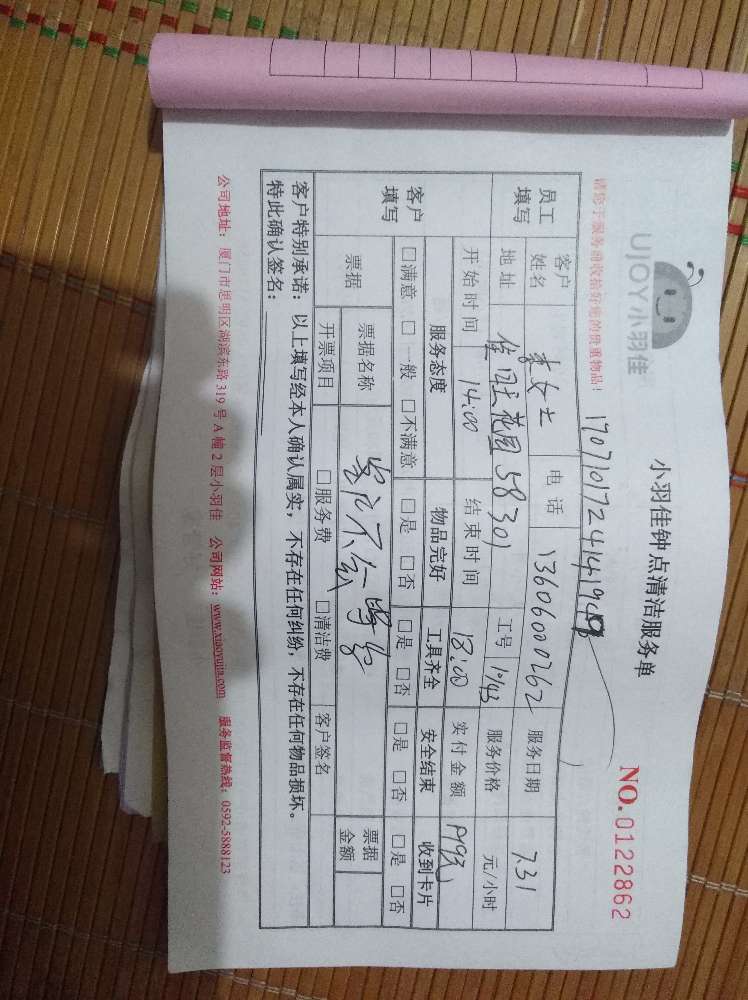 UJOY小羽佳
小羽佳钟点清洁服务单
NO.0122862
请您于服务前收拾好您的贵重物品！
员工填写 客户姓名 李女士 电话 13606000262 服务日期 7.31
地址 58301 工号 1943 服务价格 元/小时
开始时间 14:00 结束时间 18:00 实付金额
客户填写 服务态度 物品完好 工具齐全 安全结束 收到卡片
□满意 □一般 □不满意 □是 □否 □是 □否 □是 □否 □是 □否
票据 票据名称 票据金额
开票项目 □服务费 □清洁费 客户签名
客户特别承诺：以上填写经本人确认属实，不存在任何纠纷，不存在任何物品损坏。
特此确认签名：
公司地址：厦门市思明区湖滨东路319号A幢2层小羽佳 公司网站：www.xiaoyujia.com 服务监督热线：0592-5888123